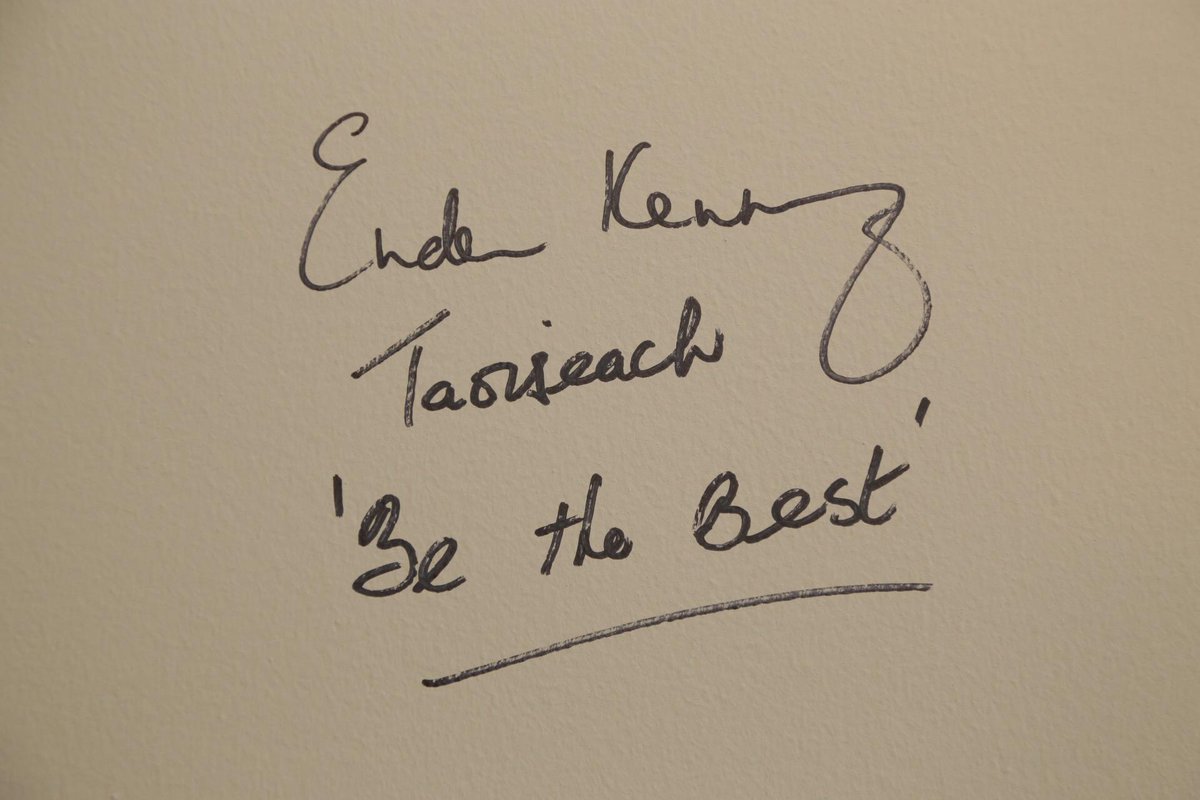 Enda Kenny
Taoiseach
'Be the Best'